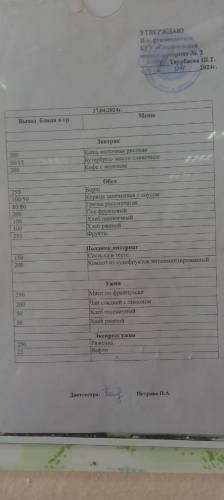 УТВЕРЖДАЮ
И.о. руководителя
КГУ
№ 2
Ш. Т.
2024г.
17.04.2024г.
Выход блюда в гр Меню
Завтрак
200 Каша молочная рисовая
Бутерброд масло сливочное
200 Кофе с молоком
Обед
250 Борщ
100/50 Курица запеченная с соусом
Гречка рассыпчатая
200 Сок фруктовый
100 Хлеб пшеничный
100 Хлеб ржаной
250 Фрукты
Полдник интернат
150 Сосиска в тесте
200 Компот из сухофруктов витаминизированный
Ужин
250 Мясо по французски
200 Чай сладкий с лимоном
50 Хлеб пшеничный
50 Хлеб ржаной
Экспресс ужин
250 Ряженка
25 Вафли
Диетсестра: Петрова Н.А.